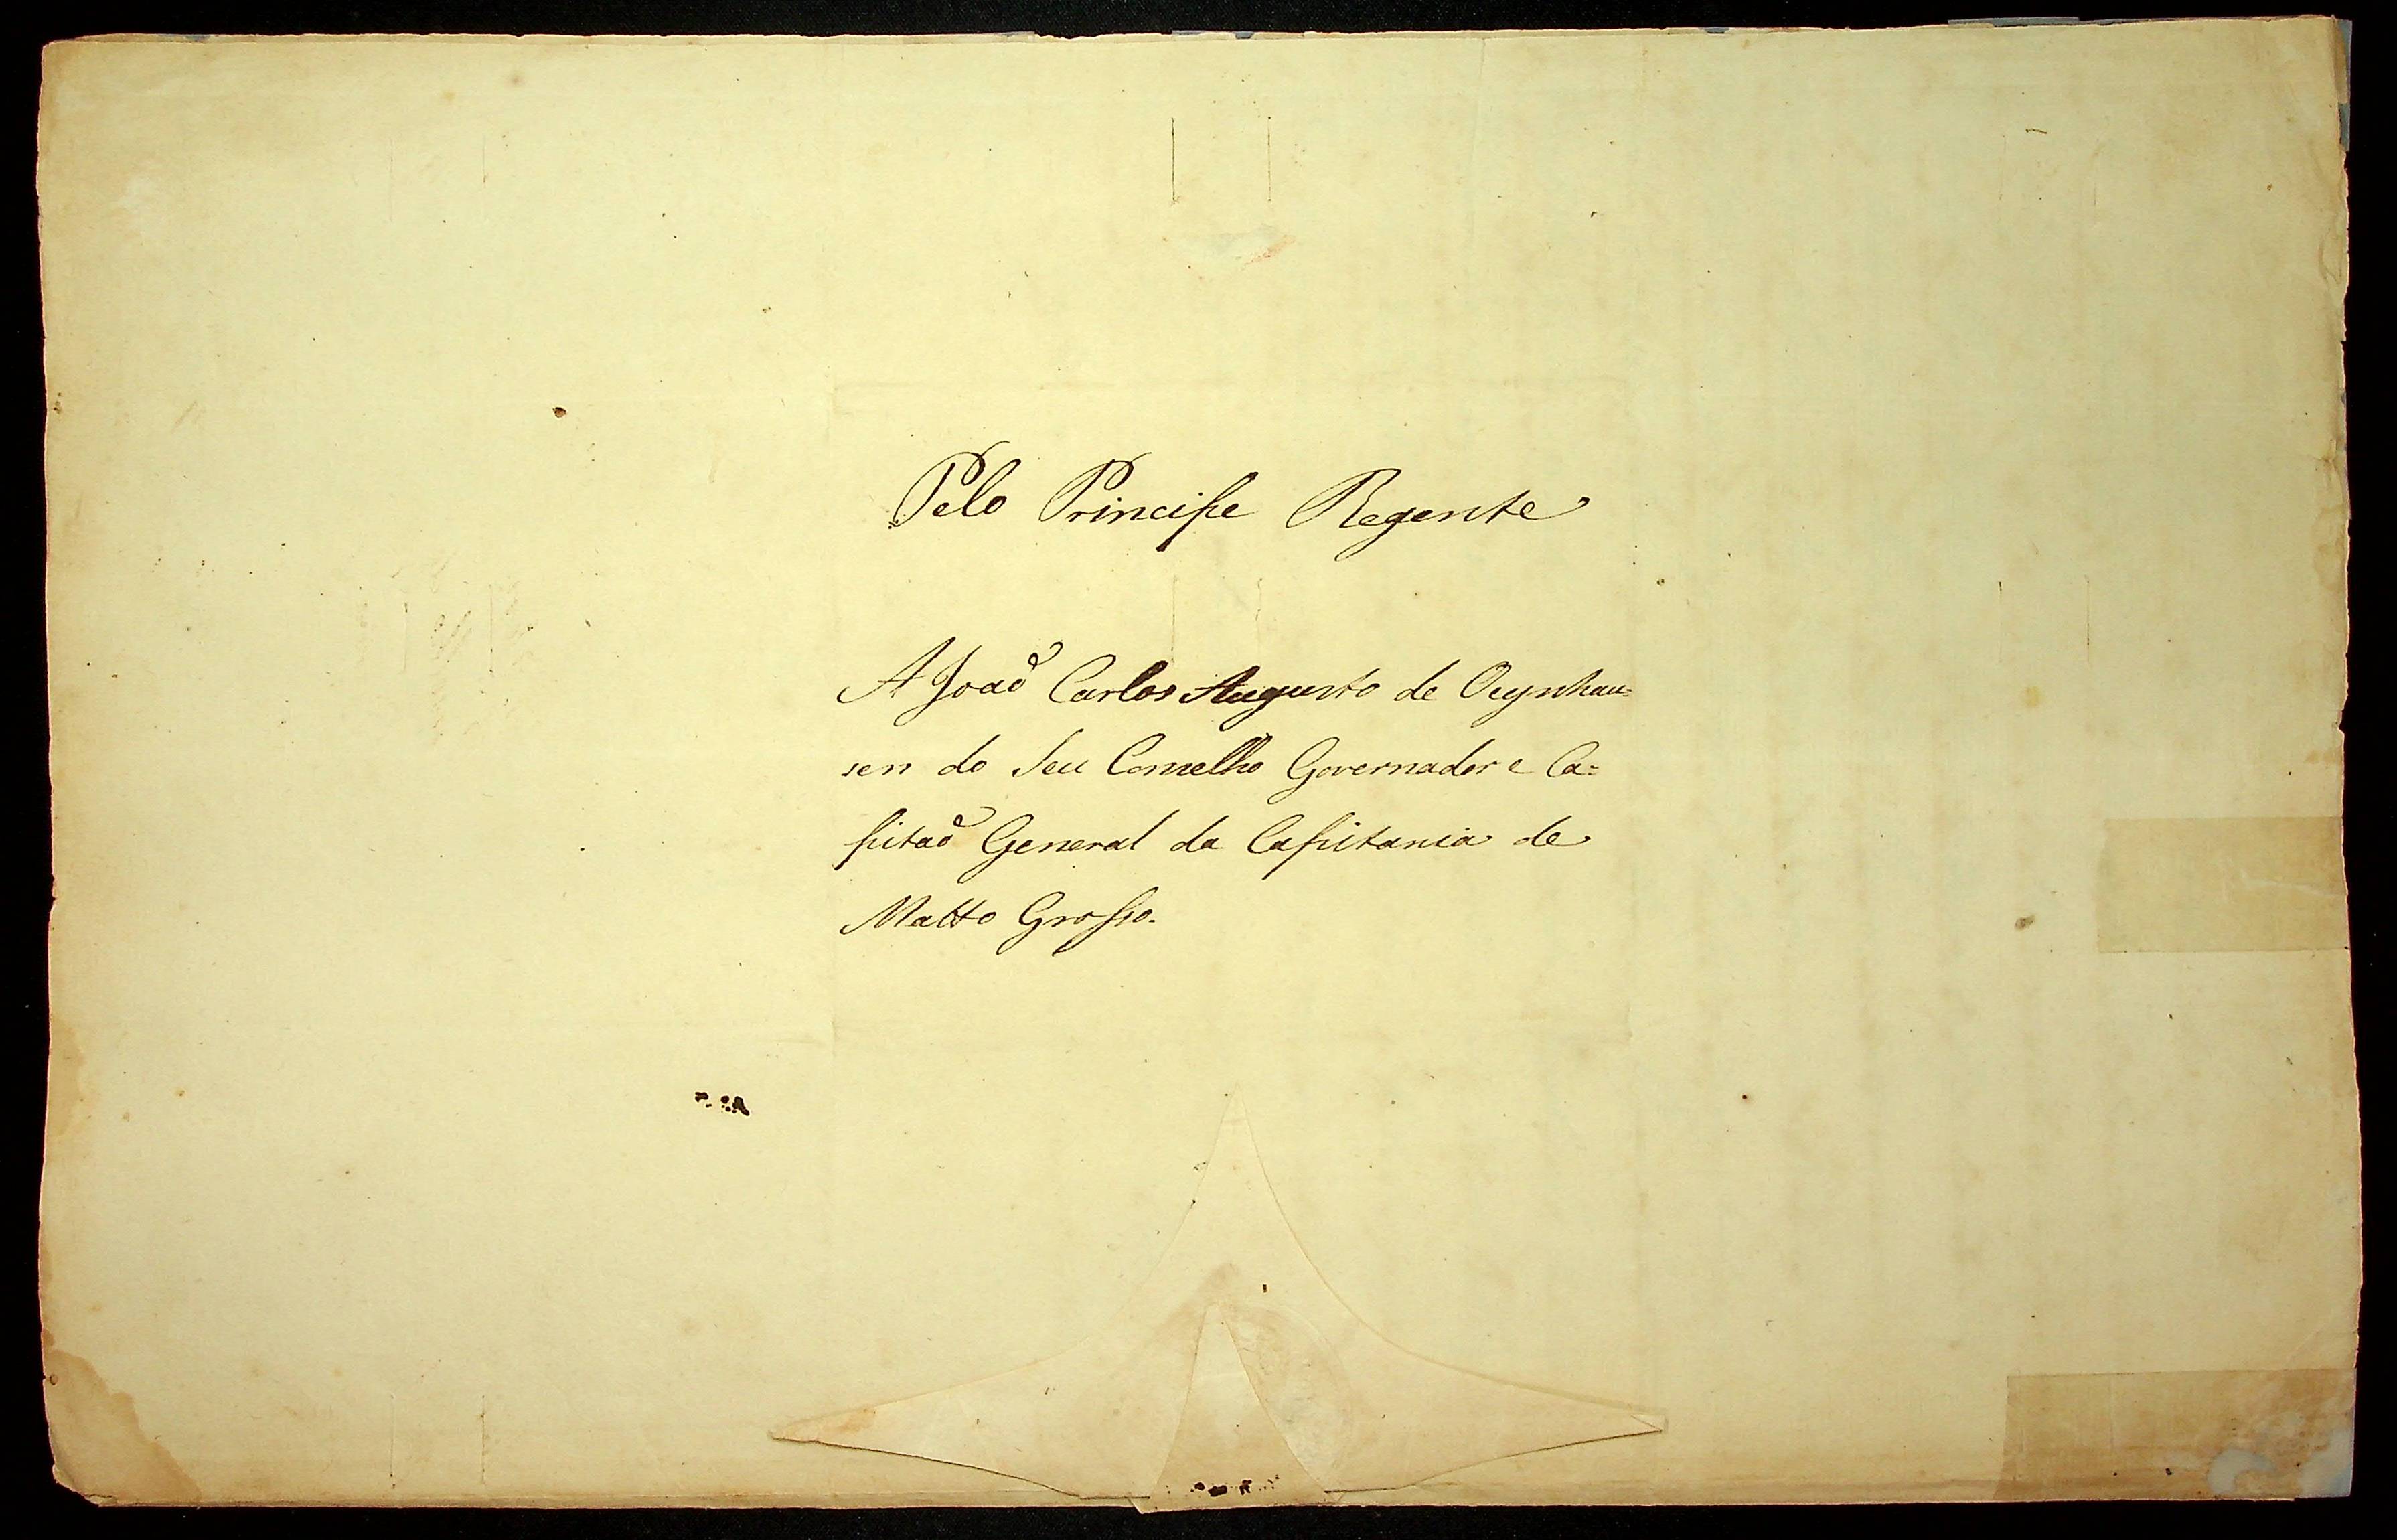 Pelo Principe Regente
A Joaõ Carlos Augusto de Oeynhau=
sen do Seu Conselho Governador e Ca=
pitaõ General da Capitania de
Matto Grosso.